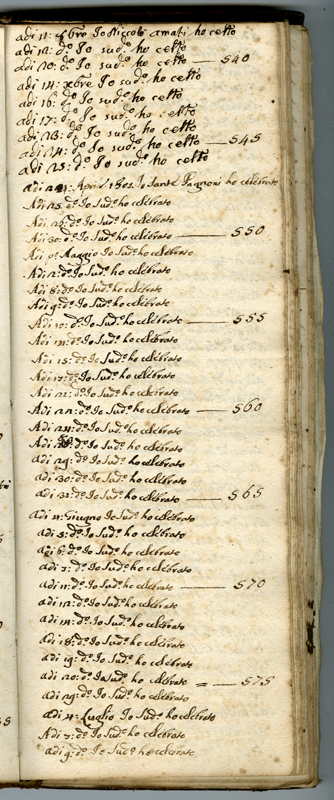 adi 11: xbre Io Niccolò amati ho cetto
adi 12: d.º Io sud.º ho cetto
adi 20: d.º Io sud.º ho cetto — 540
adi 14: xbre Io sud.º ho cetto
adi 16: d.º Io sud.º ho cetto
adi 17: d.º Io sud.º ho cetto
adi 23: d.º Io sud.º ho cetto
adi 24: d.º Io sud.º ho cetto — 545
adi 25: d.º Io sud.º ho cetto
adi Aprile Io Sante Pagnoni ho celebrato
Adi 25: d.º Io Sud.º ho celebrato
Adi 26: d.º Io Sud.º ho celebrato
Adi 30: d.º Io Sud.º ho celebrato — 550
Adi Maggio Io Sud.º ho celebrato
Adi 2: d.º Io Sud.º ho celebrato
Adi 8: d.º Io Sud.º ho celebrato
Adi 9: d.º Io Sud.º ho celebrato
Adi 10: d.º Io Sud.º ho celebrato — 555
Adi d.º Io Sud.º ho celebrato
Adi 15: d.º Io Sud.º ho celebrato
Adi 17: d.º Io Sud.º ho celebrato
Adi 21: d.º Io Sud.º ho celebrato
Adi 22: d.º Io Sud.º ho celebrato — 560
Adi 24: d.º Io Sud.º ho celebrato
Adi d.º Io Sud.º ho celebrato
adi 29: d.º Io Sud.º ho celebrato
adi 30: d.º Io Sud.º ho celebrato
adi 31: d.º Io Sud.º ho celebrato — 565
adi Giugno Io Sud.º ho celebrato
adi 5: d.º Io Sud.º ho celebrato
adi 6: d.º Io Sud.º ho celebrato
adi 7: d.º Io Sud.º ho celebrato
adi 11: d.º Io Sud.º ho celebrato — 570
adi 12: d.º Io Sud.º ho celebrato
adi 14: d.º Io Sud.º ho celebrato
adi 18: d.º Io Sud.º ho celebrato
adi 19: d.º Io Sud.º ho celebrato
adi 20: d.º Io Sud.º ho celebrato — 575
adi 29: d.º Io Sud.º ho celebrato
adi 4: Luglio Io Sud.º ho celebrato
Adi 7: d.º Io Sud.º ho celebrato
adi 9: d.º Io Sud.º ho celebrato